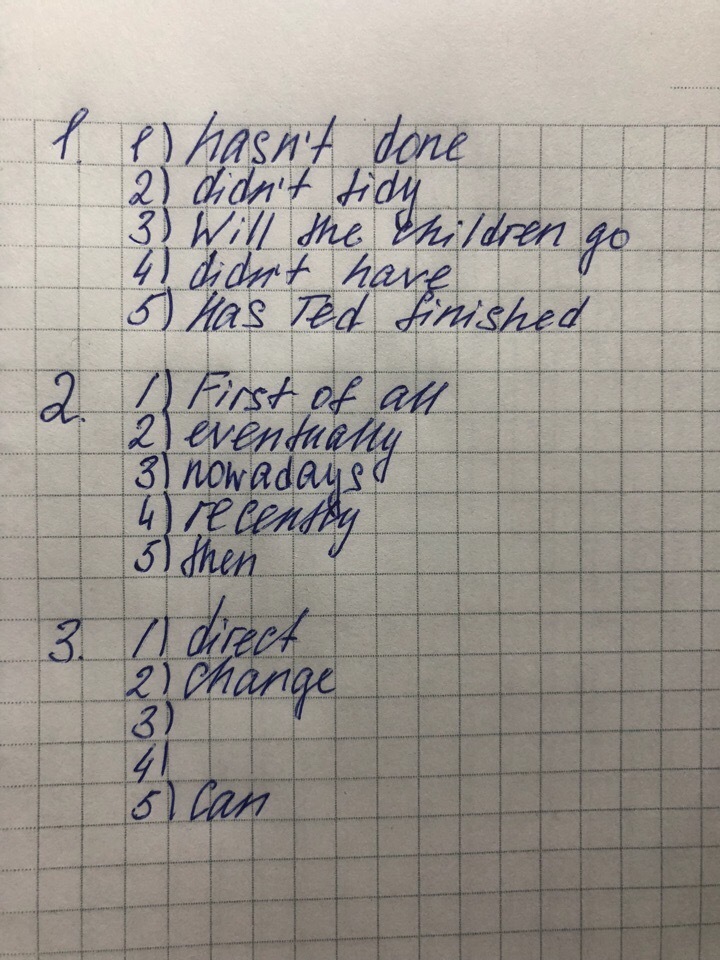 1. 1) hasn't done
2) didn't tidy
3) Will the children go
4) didn't have
5) Has Ted finished
2. 1) First of all
2) eventually
3) nowadays
4) recently
5) then
3. 1) direct
2) change
3)
4)
5) Can